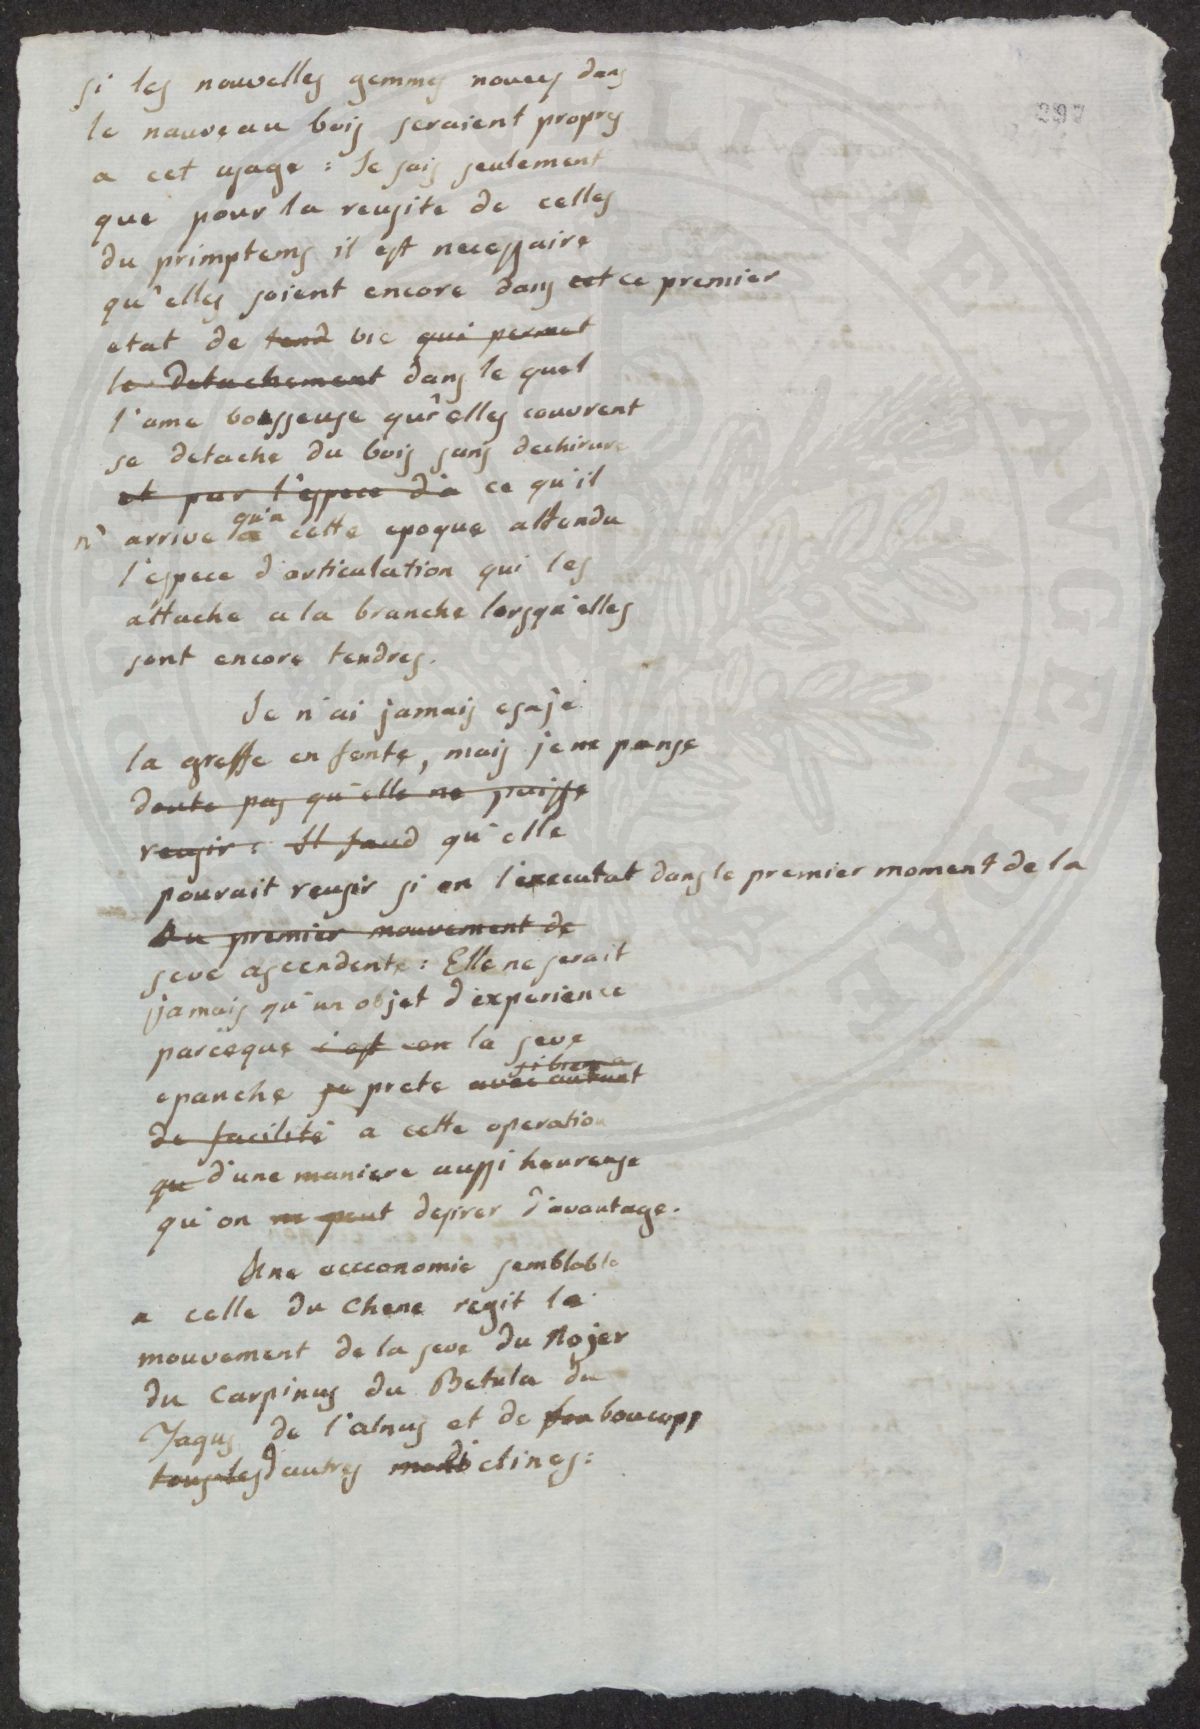 297
si les nouvelles gemmes nouees dans
le nauveau bois seraient propres
a cet usage : Je sais seulement
que pour la reusite de celles
du primptems il est necessaire
qu'elles soient encore dans cet ce premier
etat de tend vie qui permet
le detachement dans le quel
l'ame bousseuse qu'elles couvrent
se detache du bois sans dechirure
et par l'espece d'a ce qu'il
n' arrive qu'a cette epoque attendu
l'espece d'articulation qui les
attache a la branche lorsqu'elles
sont encore tendres.
Je n'ai jamais esajé
la greffe en fente, mais je ne panse
doute pas qu'elle ne puisse
reusir : Il faud qu'elle
pourait reusir si on l'executat dans le premier moment de la
Au premier mouvement de
seve ascendente : Elle ne serait
jamais qu'un objet d'experience
parceque c'est on la seve
si bien a
epanche se prete avec autant
de facilité a cette operation
qu d'une maniere aussi heureuse
qu'on ne peut desirer d'avantage.
Une oeconomie semblable
a celle du Chene regit le
mouvement de la seve du Nojer
du Carpinus du Betula du
Fagus de l'alnus et de boucoupp
tous les d'autres diclines :